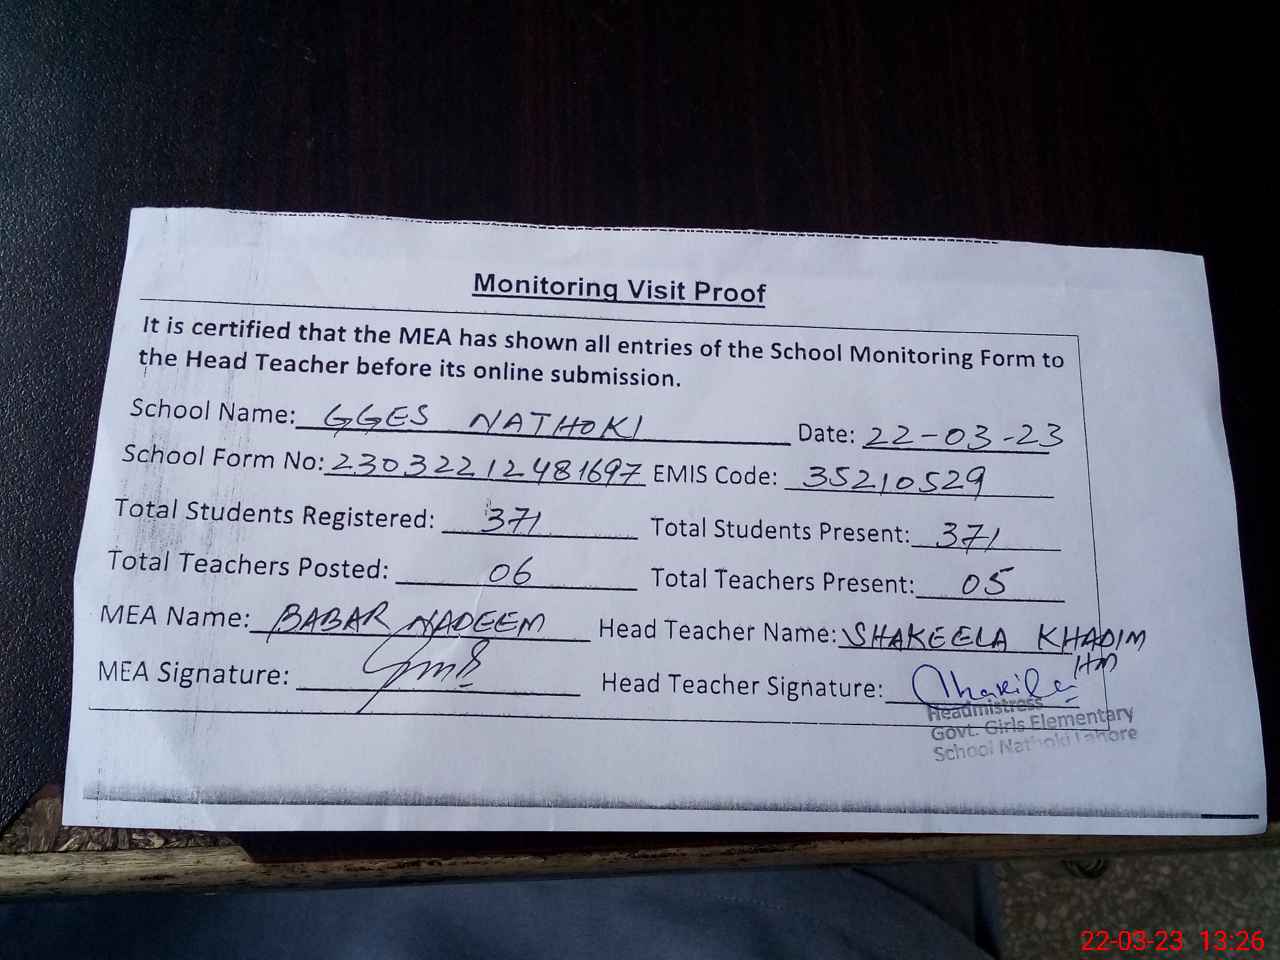 Monitoring Visit Proof
It is certified that the MEA has shown all entries of the School Monitoring Form to
the Head Teacher before its online submission.
School Name: GGES NATHOKI Date: 22-03-23
School Form No: 23032212481697 EMIS Code: 35210529
Total Students Registered: 371 Total Students Present: 371
Total Teachers Posted: 06 Total Teachers Present: 05
MEA Name: BABAR NADEEM Head Teacher Name: SHAKEELA KHADIM
HM
MEA Signature: Head Teacher Signature: Shakila
Headmistress
Govt. Girls Elementary
School Nathoki Lahore
22-03-23 13:26